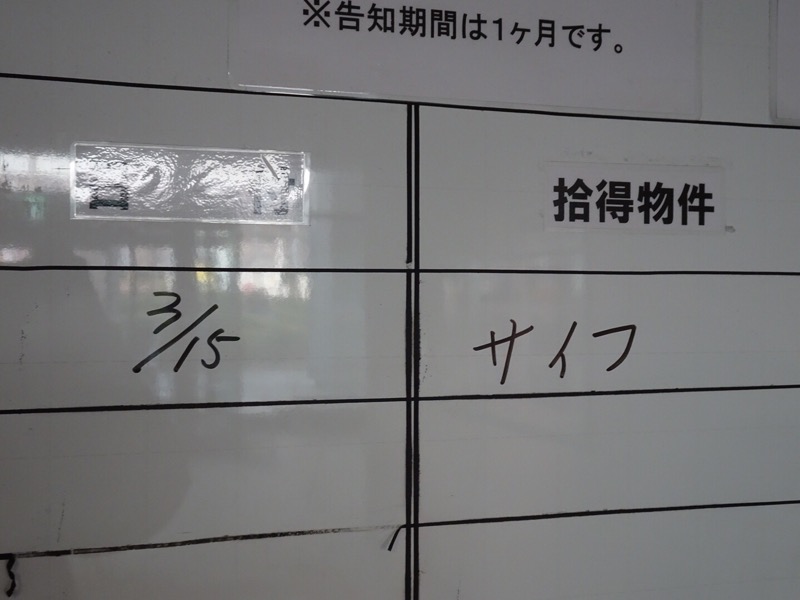 ※告知期間は1ヶ月です。
拾得物件
3/15
サイフ